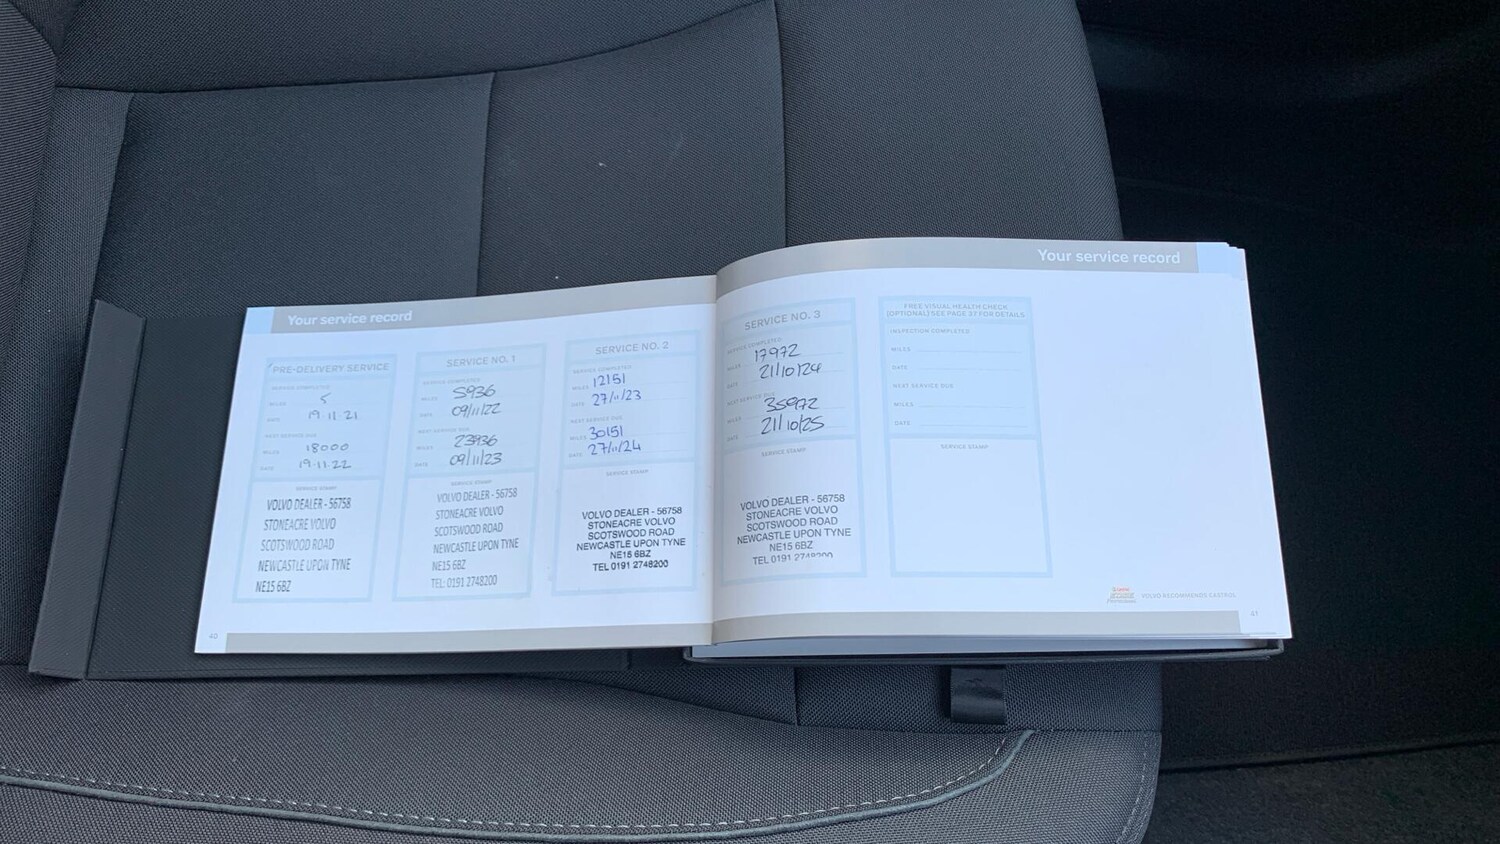 Your service record
PRE-DELIVERY SERVICE
SERVICE COMPLETED
MILES 5
DATE 19.11.21
NEXT SERVICE DUE
MILES 18000
DATE 19.11.22
SERVICE STAMP
VOLVO DEALER - 56758
STONEACRE VOLVO
SCOTSWOOD ROAD
NEWCASTLE UPON TYNE
NE15 6BZ
SERVICE NO. 1
SERVICE COMPLETED
MILES 5936
DATE 09/11/22
NEXT SERVICE DUE
MILES 23936
DATE 09/11/23
SERVICE STAMP
VOLVO DEALER - 56758
STONEACRE VOLVO
SCOTSWOOD ROAD
NEWCASTLE UPON TYNE
NE15 6BZ
TEL: 0191 2748200
SERVICE NO. 2
SERVICE COMPLETED
MILES 12151
DATE 27/11/23
NEXT SERVICE DUE
MILES 30151
DATE 27/11/24
SERVICE STAMP
VOLVO DEALER - 56758
STONEACRE VOLVO
SCOTSWOOD ROAD
NEWCASTLE UPON TYNE
NE15 6BZ
TEL 0191 2748200
40
Your service record
SERVICE NO. 3
SERVICE COMPLETED
MILES 17972
DATE 21/10/24
NEXT SERVICE DUE
MILES 35972
DATE 21/10/25
SERVICE STAMP
VOLVO DEALER - 56758
STONEACRE VOLVO
SCOTSWOOD ROAD
NEWCASTLE UPON TYNE
NE15 6BZ
TEL 0191 2748200
FREE VISUAL HEALTH CHECK
(OPTIONAL) SEE PAGE 37 FOR DETAILS
INSPECTION COMPLETED
MILES
DATE
NEXT SERVICE DUE
MILES
DATE
SERVICE STAMP
VOLVO RECOMMENDS CASTROL
41